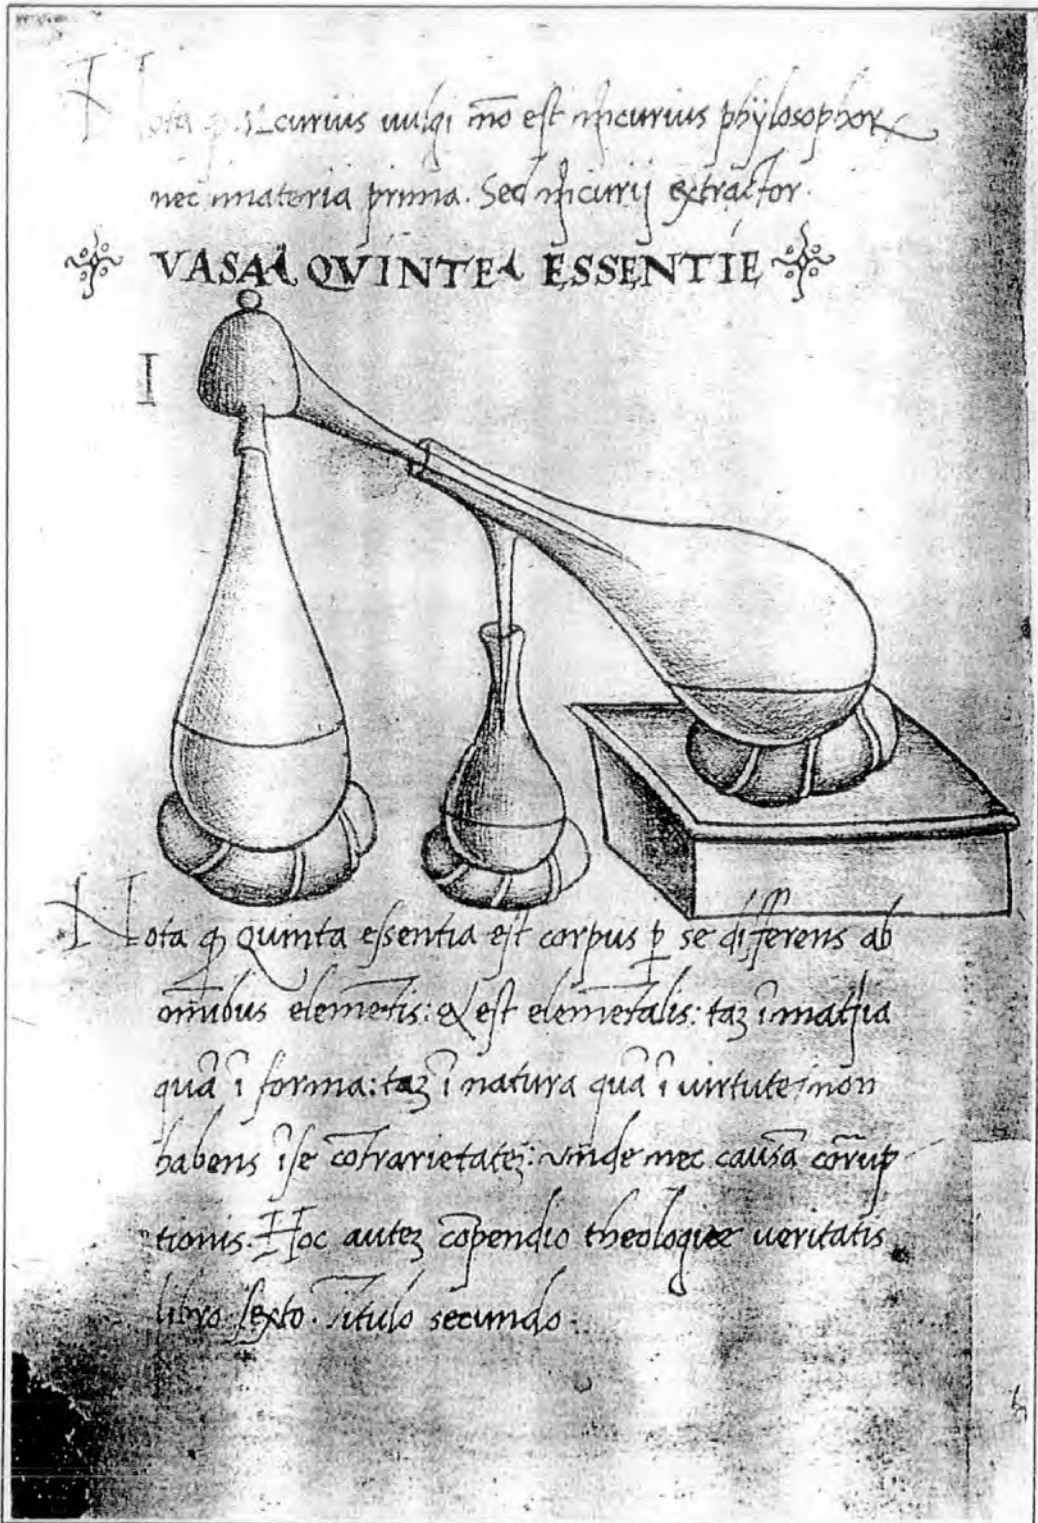 Nota ꝙ Mercurius uulgi nō est mercurius phÿlosophorꝝ
nec materia prima. Sed mercurij extractor.
VASA QVINTE ESSENTIE
I
Nota ꝙ Quinta essentia est corpus ꝑ se differens ab
oībus elemētis: & est elemētalis: taꝫ ī materia
quā ī forma: taꝫ ī natura quā ī virtute: non
habens ī se cōtrarietateꝫ: vnde nec causā corrup
tionis. Hoc auteꝫ cōpendio theologice ueritatis
libro sexto. Titulo secundo.